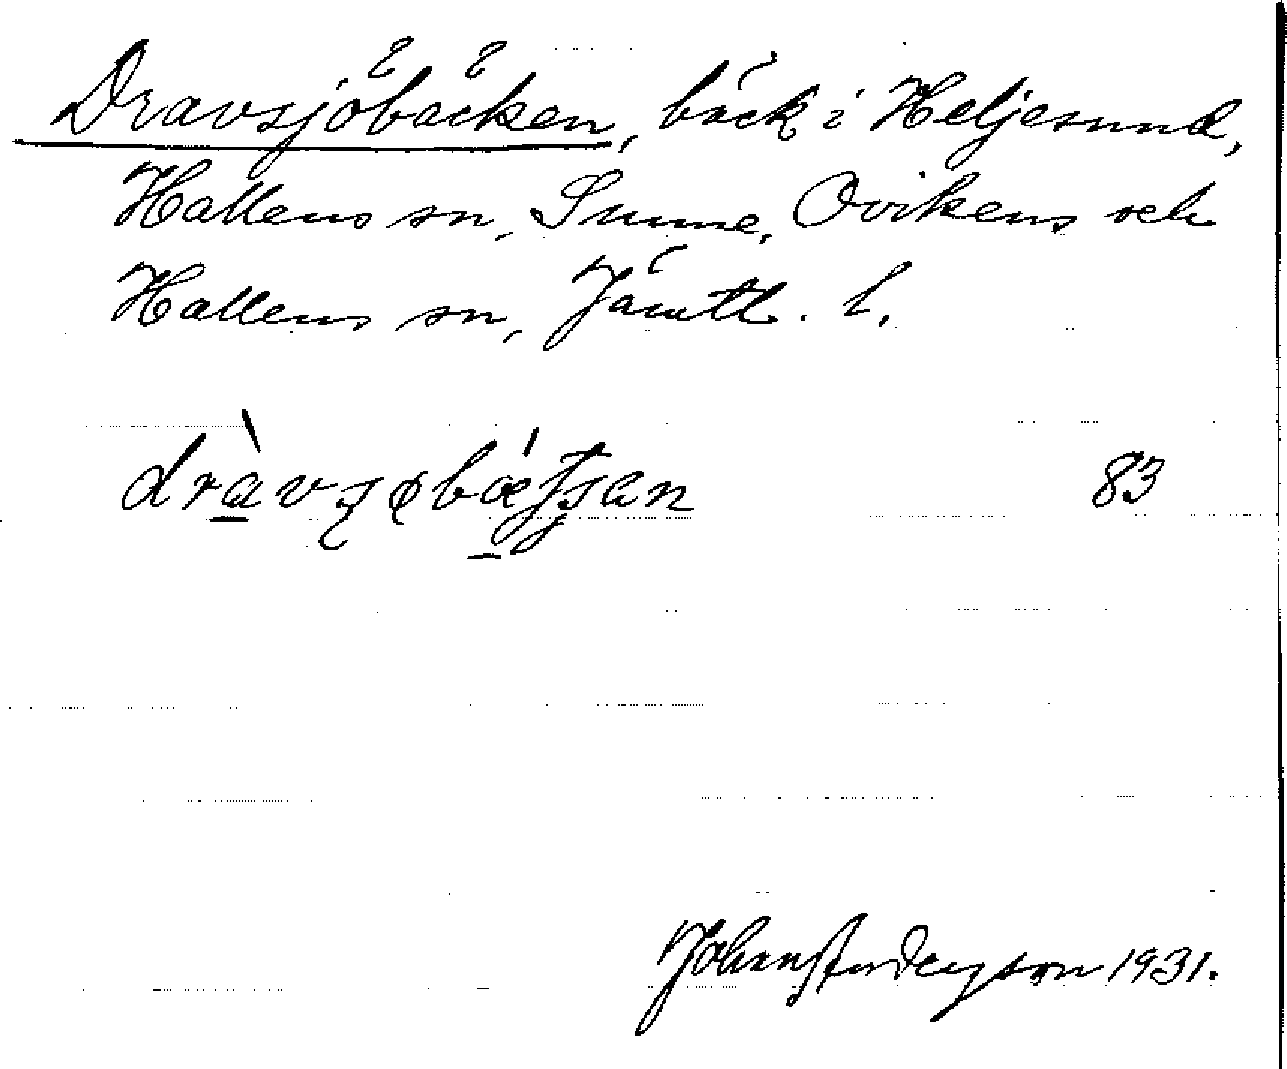 Dravsjöbäcken, bäck i Heljesund,
Hallens sn, Sunne, Ovikens och
Hallens sn, Jämtl. l.
83
Johan Anderson 1931.